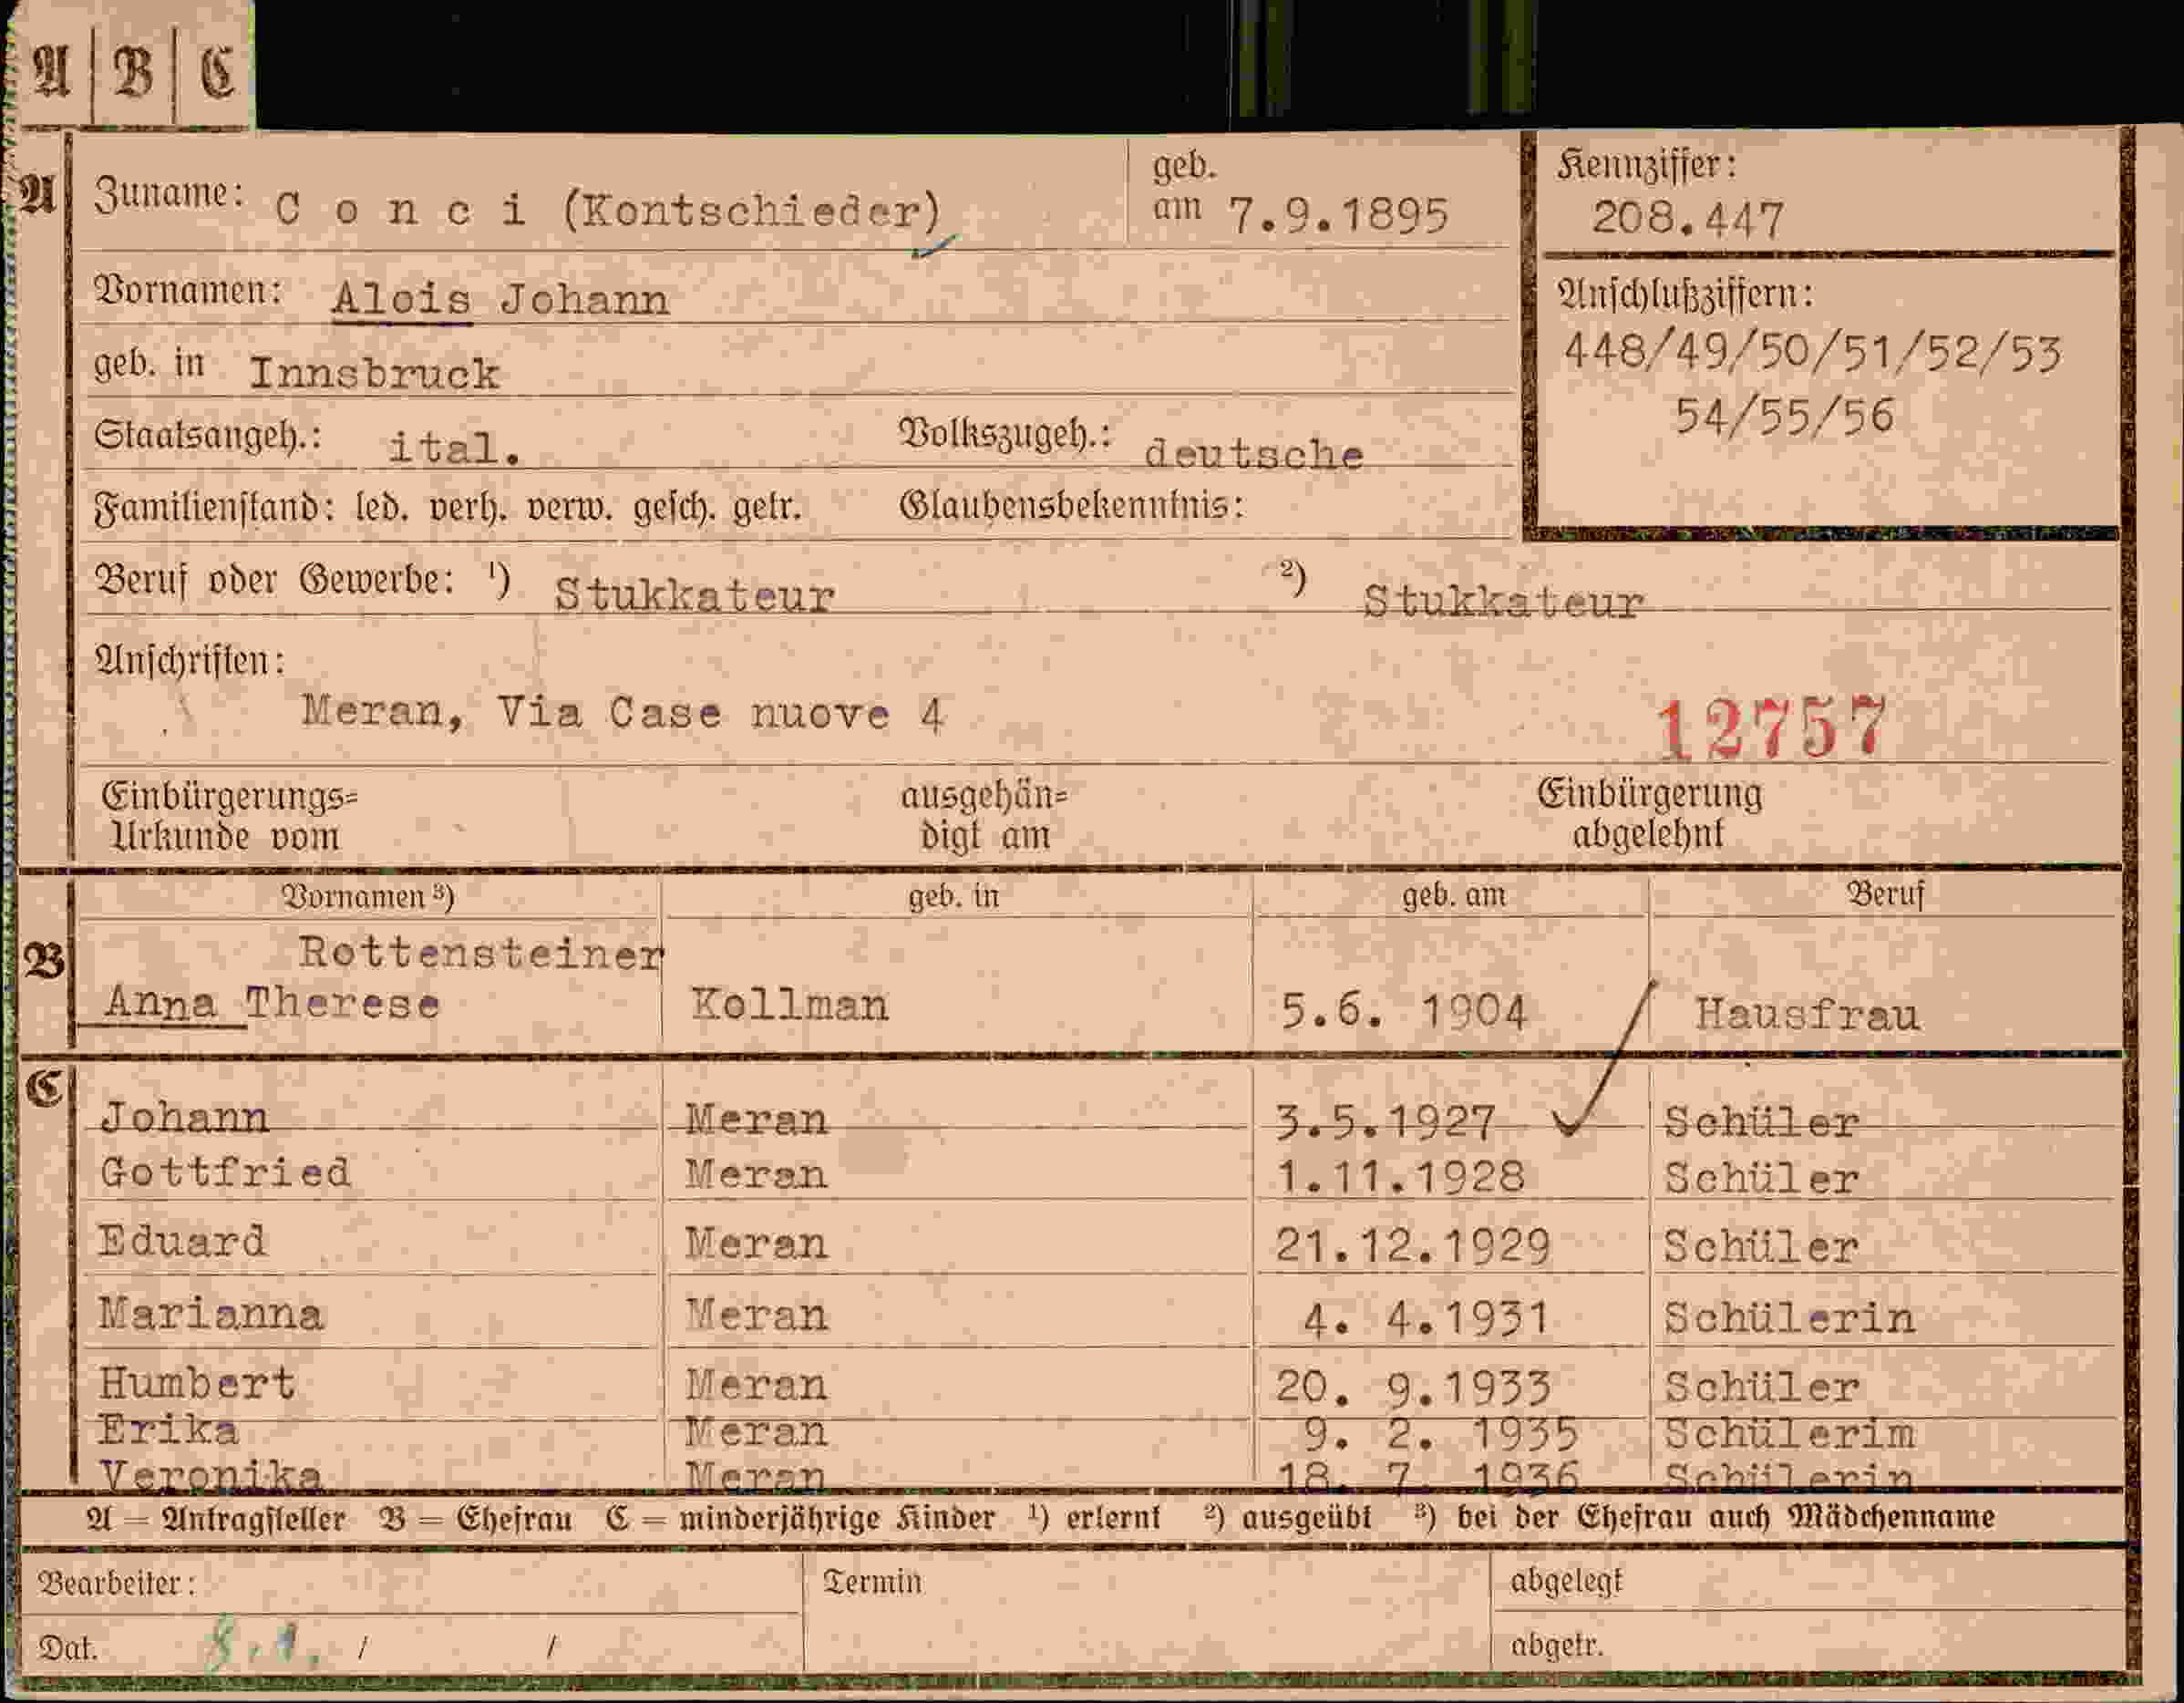 A | B | C
A Zuname: C o n c i (Kontschieder) geb. am 7.9.1895 Kennziffer: 208.447
Vornamen: Alois Johann Anschlußziffern:
geb. in Innsbruck 448/49/50/51/52/53
Staatsangeh.: ital. Volkszugeh.: deutsche 54/55/56
Familienstand: led. verh. verw. gesch. getr. Glaubensbekenntnis:
Beruf oder Gewerbe: ¹) Stukkateur ²) Stukkateur
Anschriften:
Meran, Via Case nuove 4 12757
Einbürgerungs= ausgehän= Einbürgerung
Urkunde vom digt am abgelehnt
Vornamen ³) geb. in geb. am Beruf
B Rottensteiner
Anna Therese Kollman 5.6. 1904 Hausfrau
C
Johann Meran 3.5.1927 Schüler
Gottfried Meran 1.11.1928 Schüler
Eduard Meran 21.12.1929 Schüler
Marianna Meran 4. 4.1931 Schülerin
Humbert Meran 20. 9.1933 Schüler
Erika Meran 9. 2. 1935 Schülerim
Veronika Meran 18. 7. 1936 Schülerin
A = Antragsteller B = Ehefrau C = minderjährige Kinder ¹) erlernt ²) ausgeübt ³) bei der Ehefrau auch Mädchenname
Bearbeiter: Termin abgelegt
Dat. / / abgetr.